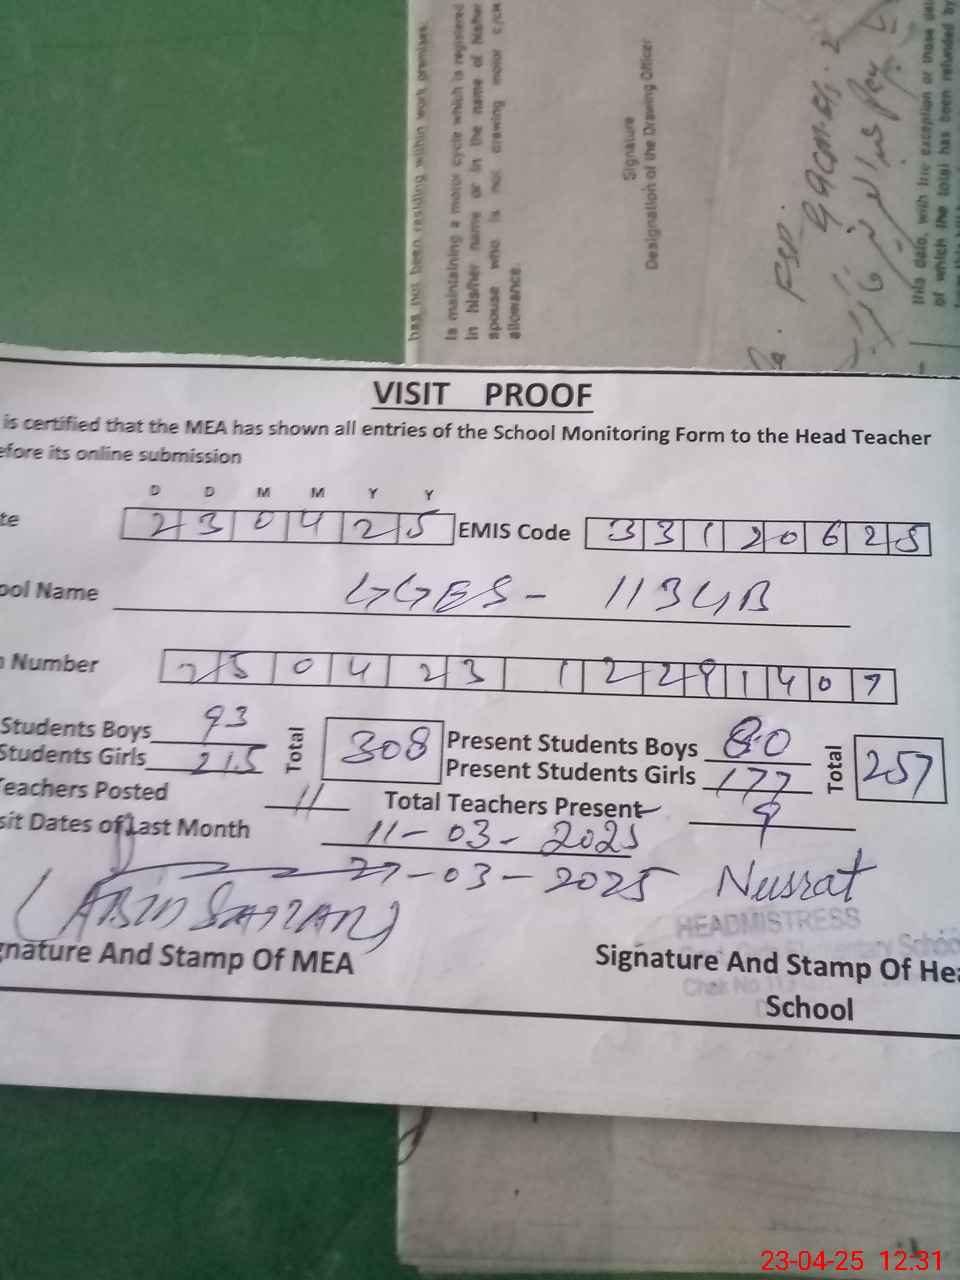 has not been residing within work premises.
Is maintaining a motor cycle which is registered
in his/her name or in the name of his/her
spouse who is not drawing motor cycle
allowance.
Signature
Designation of the Drawing Officer
this date, with the exception of those
of which the total has been refunded by
VISIT PROOF
is certified that the MEA has shown all entries of the School Monitoring Form to the Head Teacher
efore its online submission
D D M M Y Y
te 2 3 0 4 2 5 EMIS Code 3 3 1 2 0 6 2 5
ool Name GGES - 113 GB
Number 2 5 0 4 2 3 1 2 2 9 1 4 0 7
Students Boys 93 Total 308 Present Students Boys 80 Total 257
Students Girls 215 Present Students Girls 177
eachers Posted 11 Total Teachers Present 9
sit Dates of Last Month 11-03-2025
27-03-2025 Nusrat
HEADMISTRESS
gnature And Stamp Of MEA Signature And Stamp Of Hea
School
23-04-25 12:31